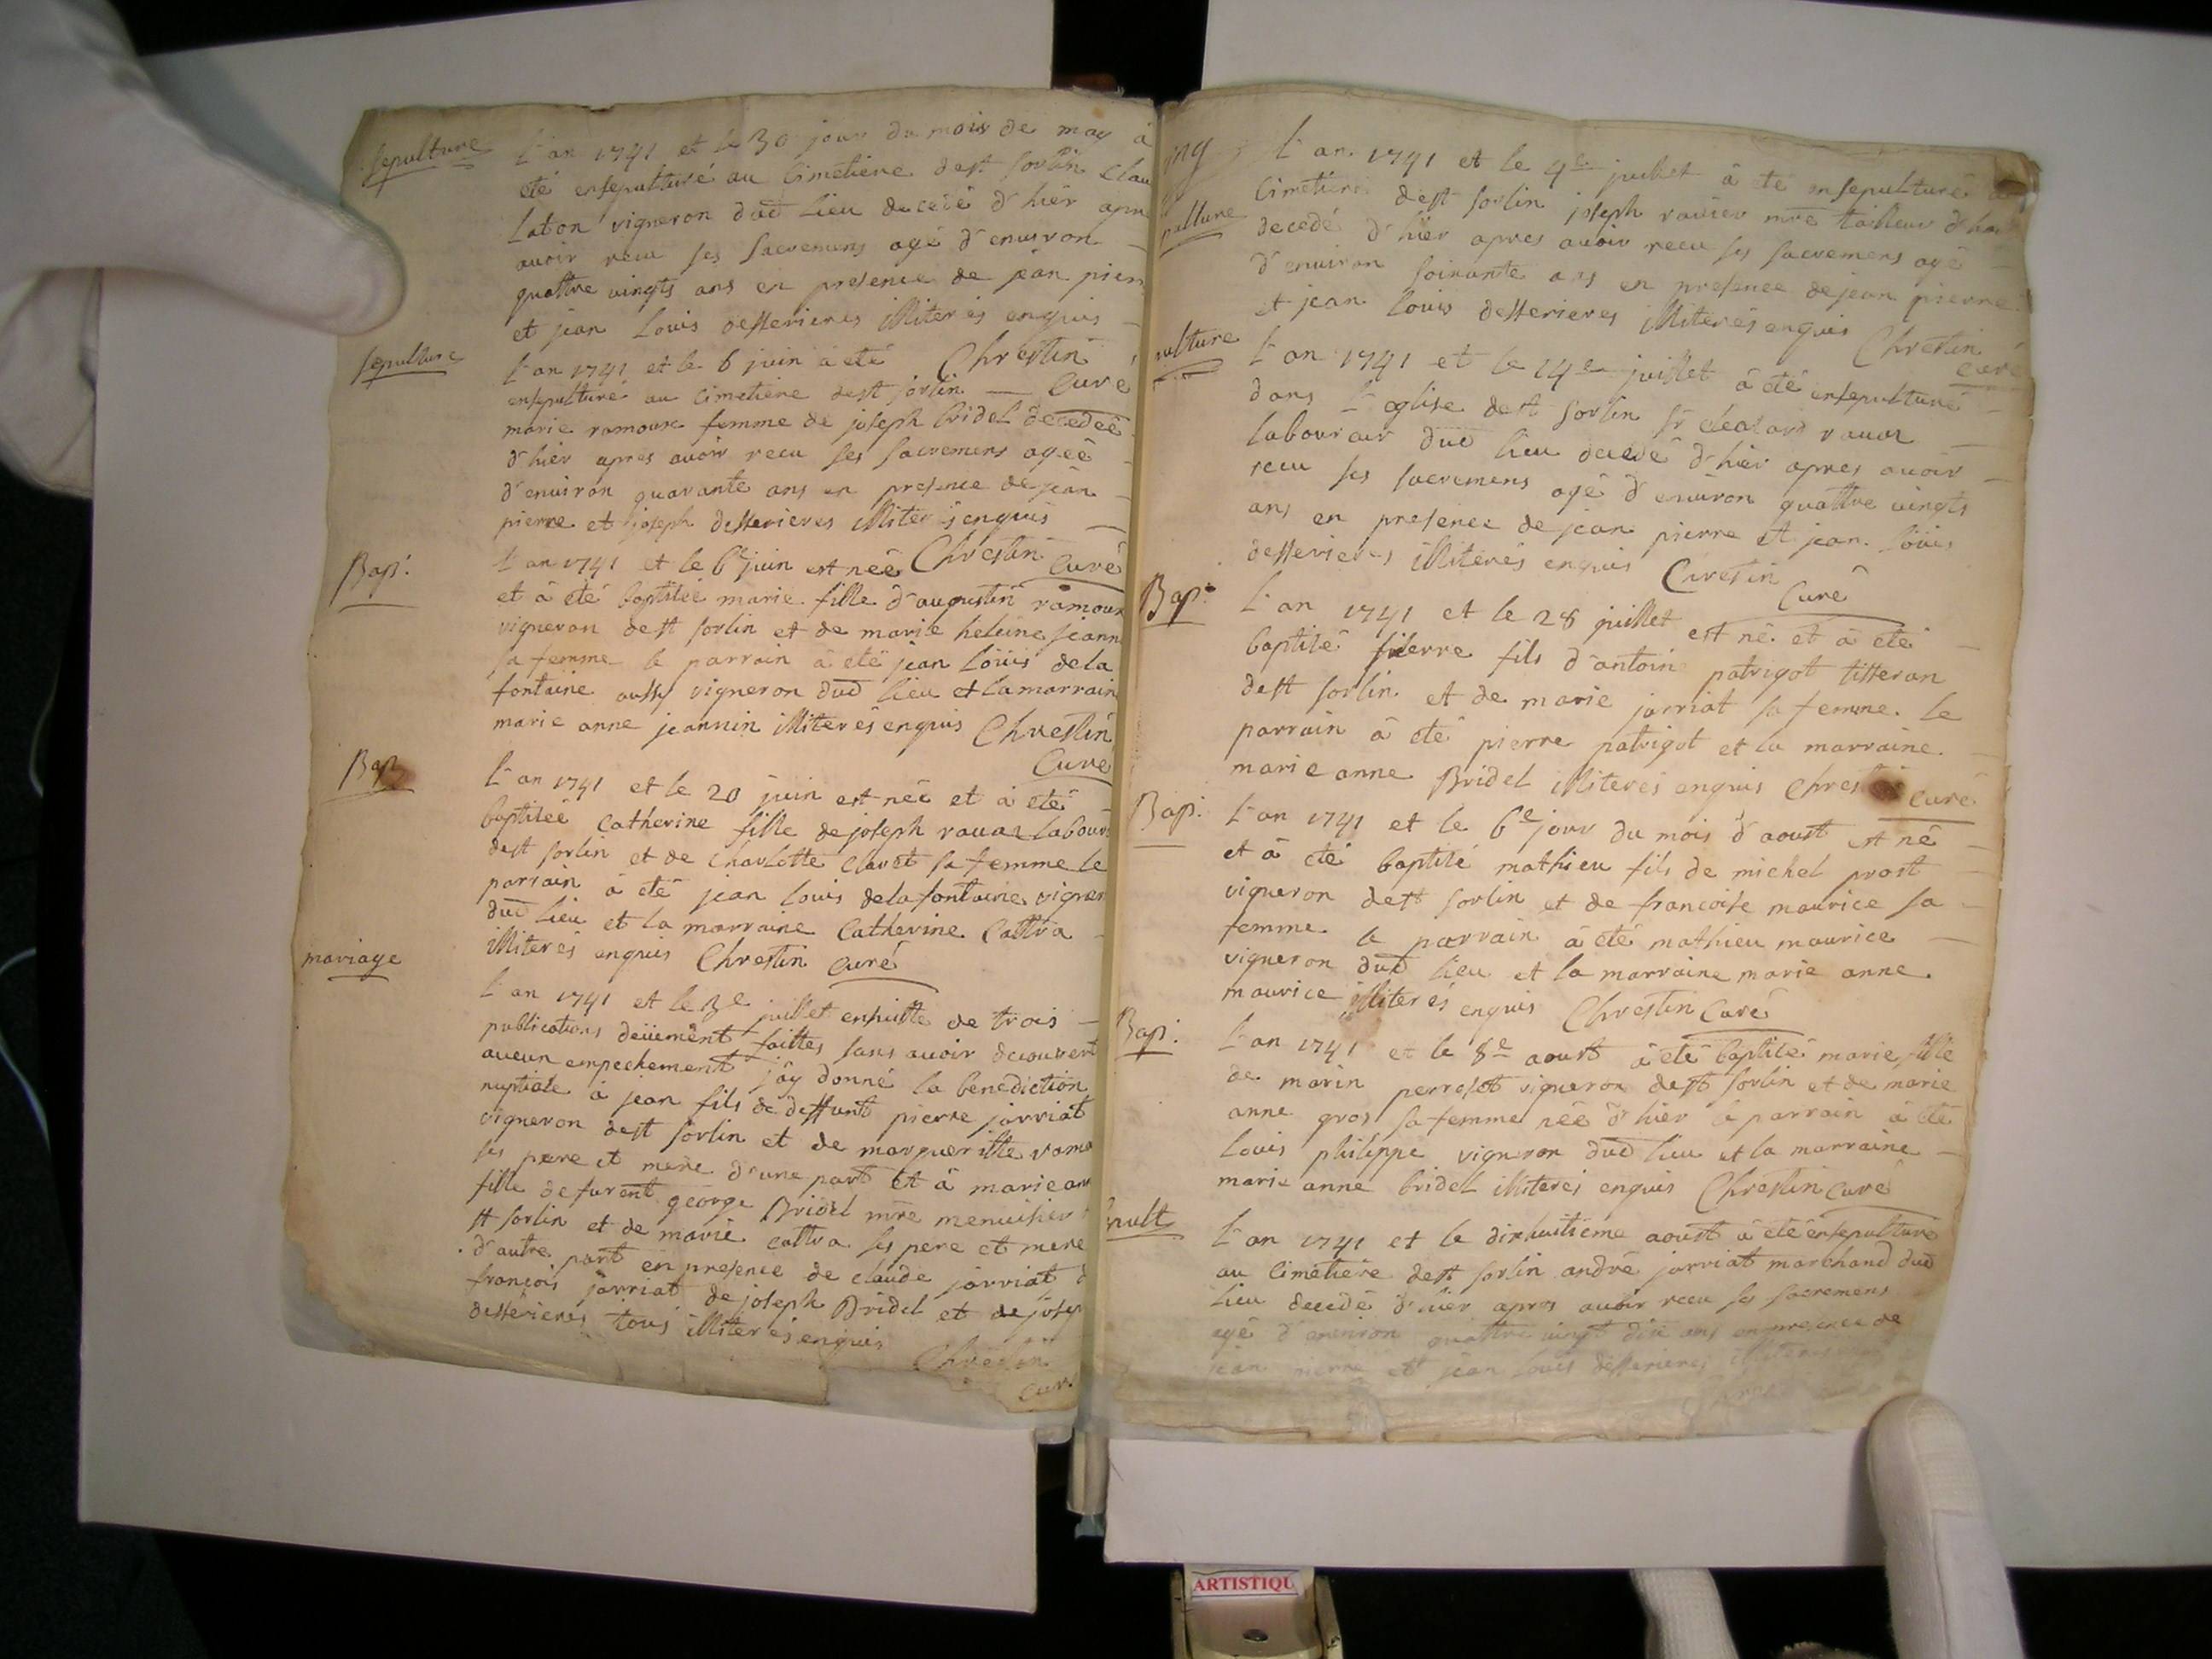 sepulture
L'an 1741 et le 30 jour du mois de may à
eté ensepulturé au Cimetiere de st sorlin Clau
Laton vigneron dud lieu decedé d'hier apre
avoir recu ses sacremens agé d'environ
quattre vingts ans en presence de jean pierr
et jean Louis desserieres illiterés enquis
Chrestin
Curé
sepulture
L'an 1741 et le 6 juin à eté
ensepulturé au Cimetiere de st sorlin
marie ramoux femme de joseph bridel decedeé
d'hier apres avoir recu ses sacremens ageé
d'environ quarante ans en presence de jean
pierre et joseph desserieres illiterés enquis
Chrestin
Curé
Bap:
L'an 1741 et le 6e juin est neé
et à eté baptiseé marie fille d'augustin ramoux
vigneron de st sorlin et de marie heleine jeann
sa femme le parrain à eté jean loüis dela
fontaine aussy vigneron dud lieu et la marrain
marie anne jeannin illiterés enquis Chrestin
Curé
Bap
L'an 1741 et le 20 juin est neé et à eté
baptiseé Catherine fille de joseph ravat labour
de st sorlin et de Charlotte Claret sa femme le
parrain à eté jean louis delafontaine vigner
dud lieu et la marraine Catherine Cattra
illiterés enquis Chrestin Curé
mariage
L'an 1741 et le 3e juillet ensuitte de trois
publications deüement faittes sans avoir decouvert
aucun empechement j'ay donné la benediction
nuptiale à jean fils de deffunt pierre jarriat
vigneron de st sorlin et de margueritte ramo
ses pere et mere d'une part et à marie ann
fille de furent george Bridel mre menuisier
st sorlin et de marie cattra ses pere et mere
d'autre part en presence de claude jarriat d
francois jarriat de joseph Bridel et de josep
desserieres tous illiterés enquis
Chrestin
Cur
L'an 1741 et le 4e juillet à eté ensepulturé
pulture
Cimetiere de st sorlin joseph ravier mre tailleur d'ha
decedé d'hier apres avoir recu ses sacremens agé
d'environ soixante ans en presence de jean pierre
et jean louis desserieres illiterés enquis Chrestin
Curé
pulture
L'an 1741 et le 14e juillet à eté ensepulturé
dans l'eglise de st sorlin sr ravat
laboureur dud lieu decedé d'hier apres avoir
recu ses sacremens agé d'environ quattre vingts
ans en presence de jean pierre et jean loüis
desserieres illiterés enquis Chrestin
Curé
Bap:
L'an 1741 et le 28 juillet est né et à eté
baptisé pierre fils d'antoine patrigot tisseran
de st sorlin et de marie jarriat sa femme le
parrain à eté pierre patrigot et la marraine
marie anne Bridel illiterés enquis Chrestin Curé
Bap:
L'an 1741 et le 6e jour du mois d'aoust est né
et à eté baptisé mathieu fils de michel prost
vigneron de st sorlin et de francoise maurice sa
femme le parrain à eté mathieu maurice
vigneron dud lieu et la marraine marie anne
maurice illiterés enquis Chrestin Curé
Bap:
L'an 1741 et le 8e aoust à eté baptiseé marie fille
de marin perresot vigneron de st sorlin et de marie
anne gros sa femme neé d'hier le parrain à eté
louis philippe vigneron dud lieu et la marraine
marie anne bridel illiterés enquis Chrestin Curé
pult
L'an 1741 et le dixhuitieme aoust à eté ensepulturé
au Cimetiere de st sorlin andré jarriat marchand dud
lieu decedé d'hier apres avoir recu ses sacremens
agé d'environ quattre vingt dix ans en presence de
jean pierre et jean louis desserieres
ARTISTIQU